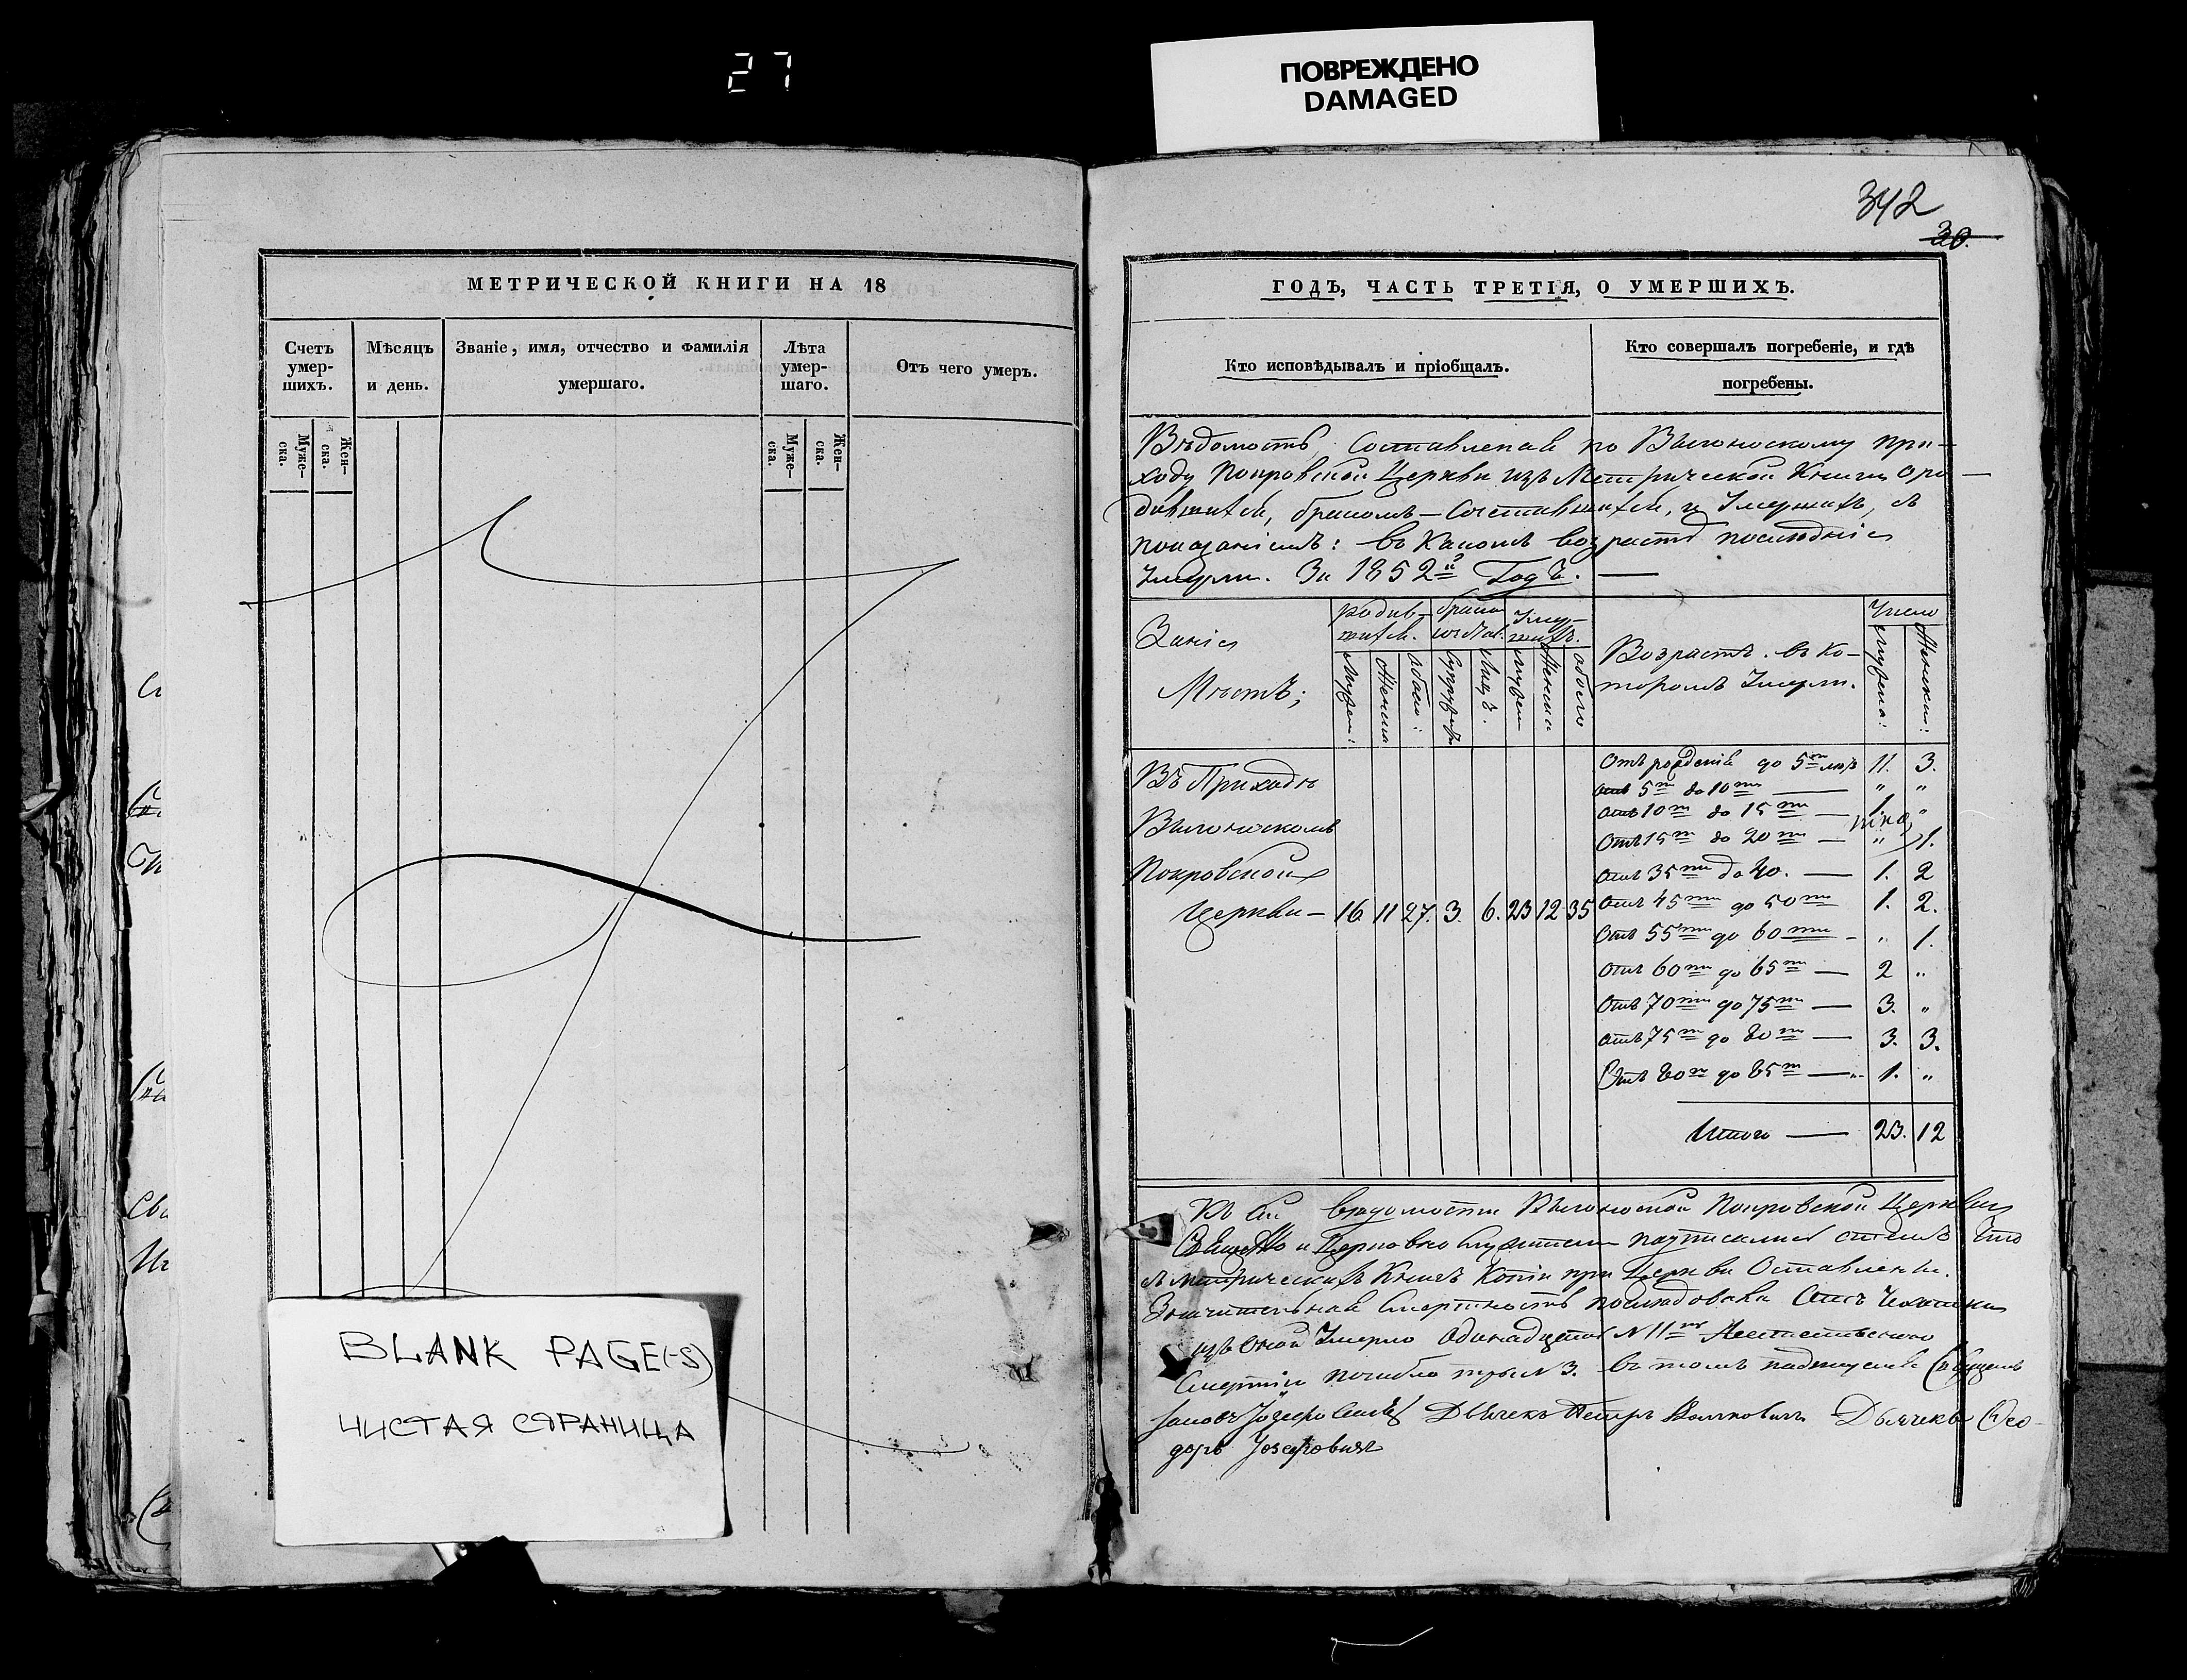 27
ПОВРЕЖДЕНО
DAMAGED
342
30.
МЕТРИЧЕСКОЙ КНИГИ НА 18
Счетъ умер-шихъ.
Мѣсяцъ и день.
Званіе, имя, отчество и фамилія умершаго.
Лѣта умер-шаго.
Отъ чего умеръ.
Муже-ска.
Жен-ска.
Муже-ска.
Жен-ска.
BLANK PAGE(-S)
ЧИСТАЯ СТРАНИЦА
ГОДЪ, ЧАСТЬ ТРЕТІЯ, О УМЕРШИХЪ.
Кто исповѣдывалъ и пріобщалъ.
Кто совершалъ погребеніе, и гдѣ погребены.
Вѣдомость Составленая по Выгоноскому при-
ходу Покровской Церкви изъ Метрической Книги о ро-
дившихся, бракомъ-Сочетавшихся, и Умершихъ, съ
показаніемъ: въ Какомъ возрастѣ послѣдніе
Умерли. За 1852й Годъ.
Мѣстъ;
родив-шихся.
Умер-шихъ.
Возрастъ. въ ко-
торомъ Умерли.
Число
Въ Приходѣ
Выгоноскомъ
Покровской
Церкви — 16 11 27. 3. 6. 23 12 35
Отъ рожденія до 5ти лѣтъ 11. 3.
отъ 5ти до 10ти — " "
отъ 10ти до 15ти — 1. "
Отъ 15ти до 20ти — " 1.
Отъ 35ти до 40. — 1. 2
Отъ 45ти до 50ти 1. 2.
Отъ 55ти до 60ти - " 1.
Отъ 60ти до 65ти — 2 "
Отъ 70ти до 75ти — 3. "
отъ 75ти до 80ти — 3. 3.
Отъ 80ти до 85ти — 1. "
Итого — 23. 12
Къ сей вѣдомости Выгоноской Покровской Церкви
и Церковно Служители подписались съ тѣмъ Что
съ метрическихъ Книгъ Копіи при Церкви Оставлены.
Значительная Смертность послѣдовала Отъ
изъ оной Умерло Одинадцать N 11ть
Смертію погибло три N 3. въ томъ
Дьячекъ Петръ Дьячекъ Ѳео-
доръ